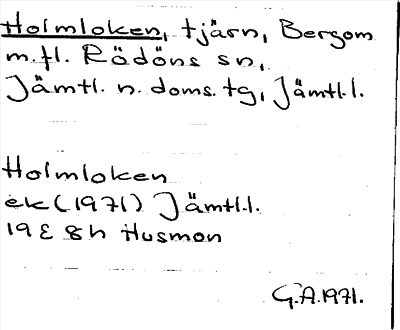 Holmloken, tjärn, Bergom
m.fl. Rödöns sn,
Jämtl. n. doms. tg, Jämtl.l.
Holmloken
ek (1971) Jämtl.l.
19 E 8h Husmon
G.A. 1971.